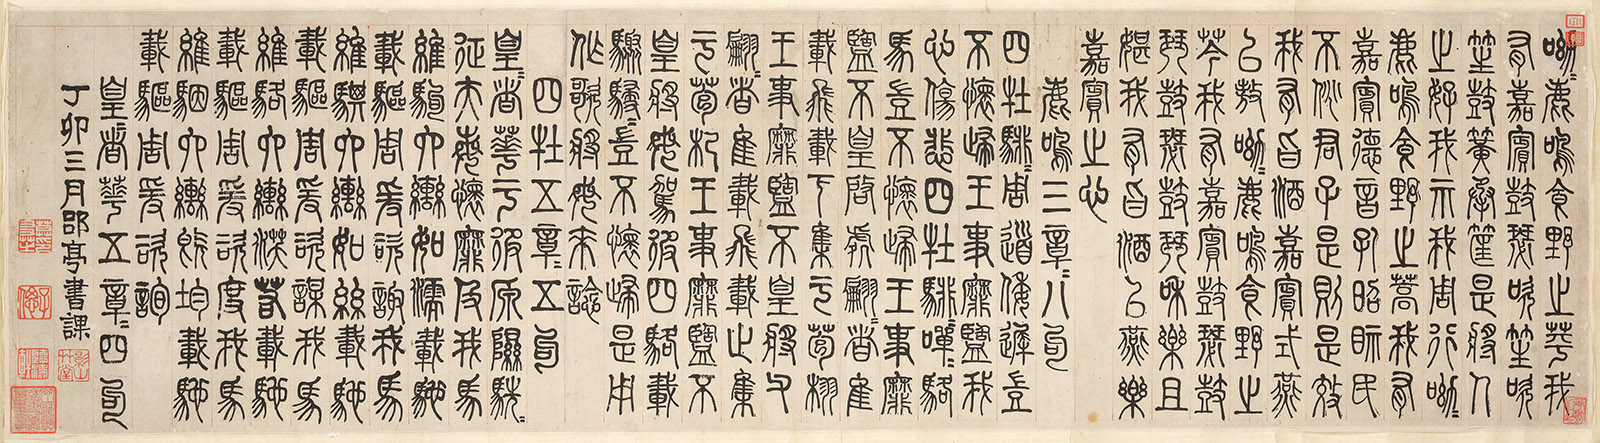 呦〻鹿鳴食野之苹我
有嘉賓鼓瑟吹笙吹
笙鼓簧承筐是將人
之好我示我周行呦〻
鹿鳴食野之蒿我有
嘉賓德音孔昭眎民
不佻君子是則是效
我有旨酒嘉賓式燕
以敖呦〻鹿鳴食野之
芩我有嘉賓鼓瑟鼓
琴鼓瑟鼓琴和樂且
媅我有旨酒以燕樂
嘉賓之心
鹿鳴三章〻八句
四牡騑〻周道倭遲豈
不懷歸王事靡盬我
心傷悲四牡騑〻嘽〻駱
馬豈不懷歸王事靡
盬不皇啓處翩〻者隹
載飛載下集于苞栩
王事靡盬不皇將父
翩〻者隹載飛載止集
于苞杞王事靡盬不
皇將母駕彼四駱載
驟駸〻豈不懷歸是用
作歌將母來諗
四牡五章〻五句
皇〻者華于彼原隰駪〻
征夫每懷靡及我馬
維駒六轡如濡載馳
載驅周爰咨諏我馬
維騏六轡如絲載馳
載驅周爰咨謀我馬
維駱六轡沃若載馳
載驅周爰咨度我馬
維駰六轡既均載馳
載驅周爰咨詢
皇〻者華五章〻四句
丁卯三月郘亭書課